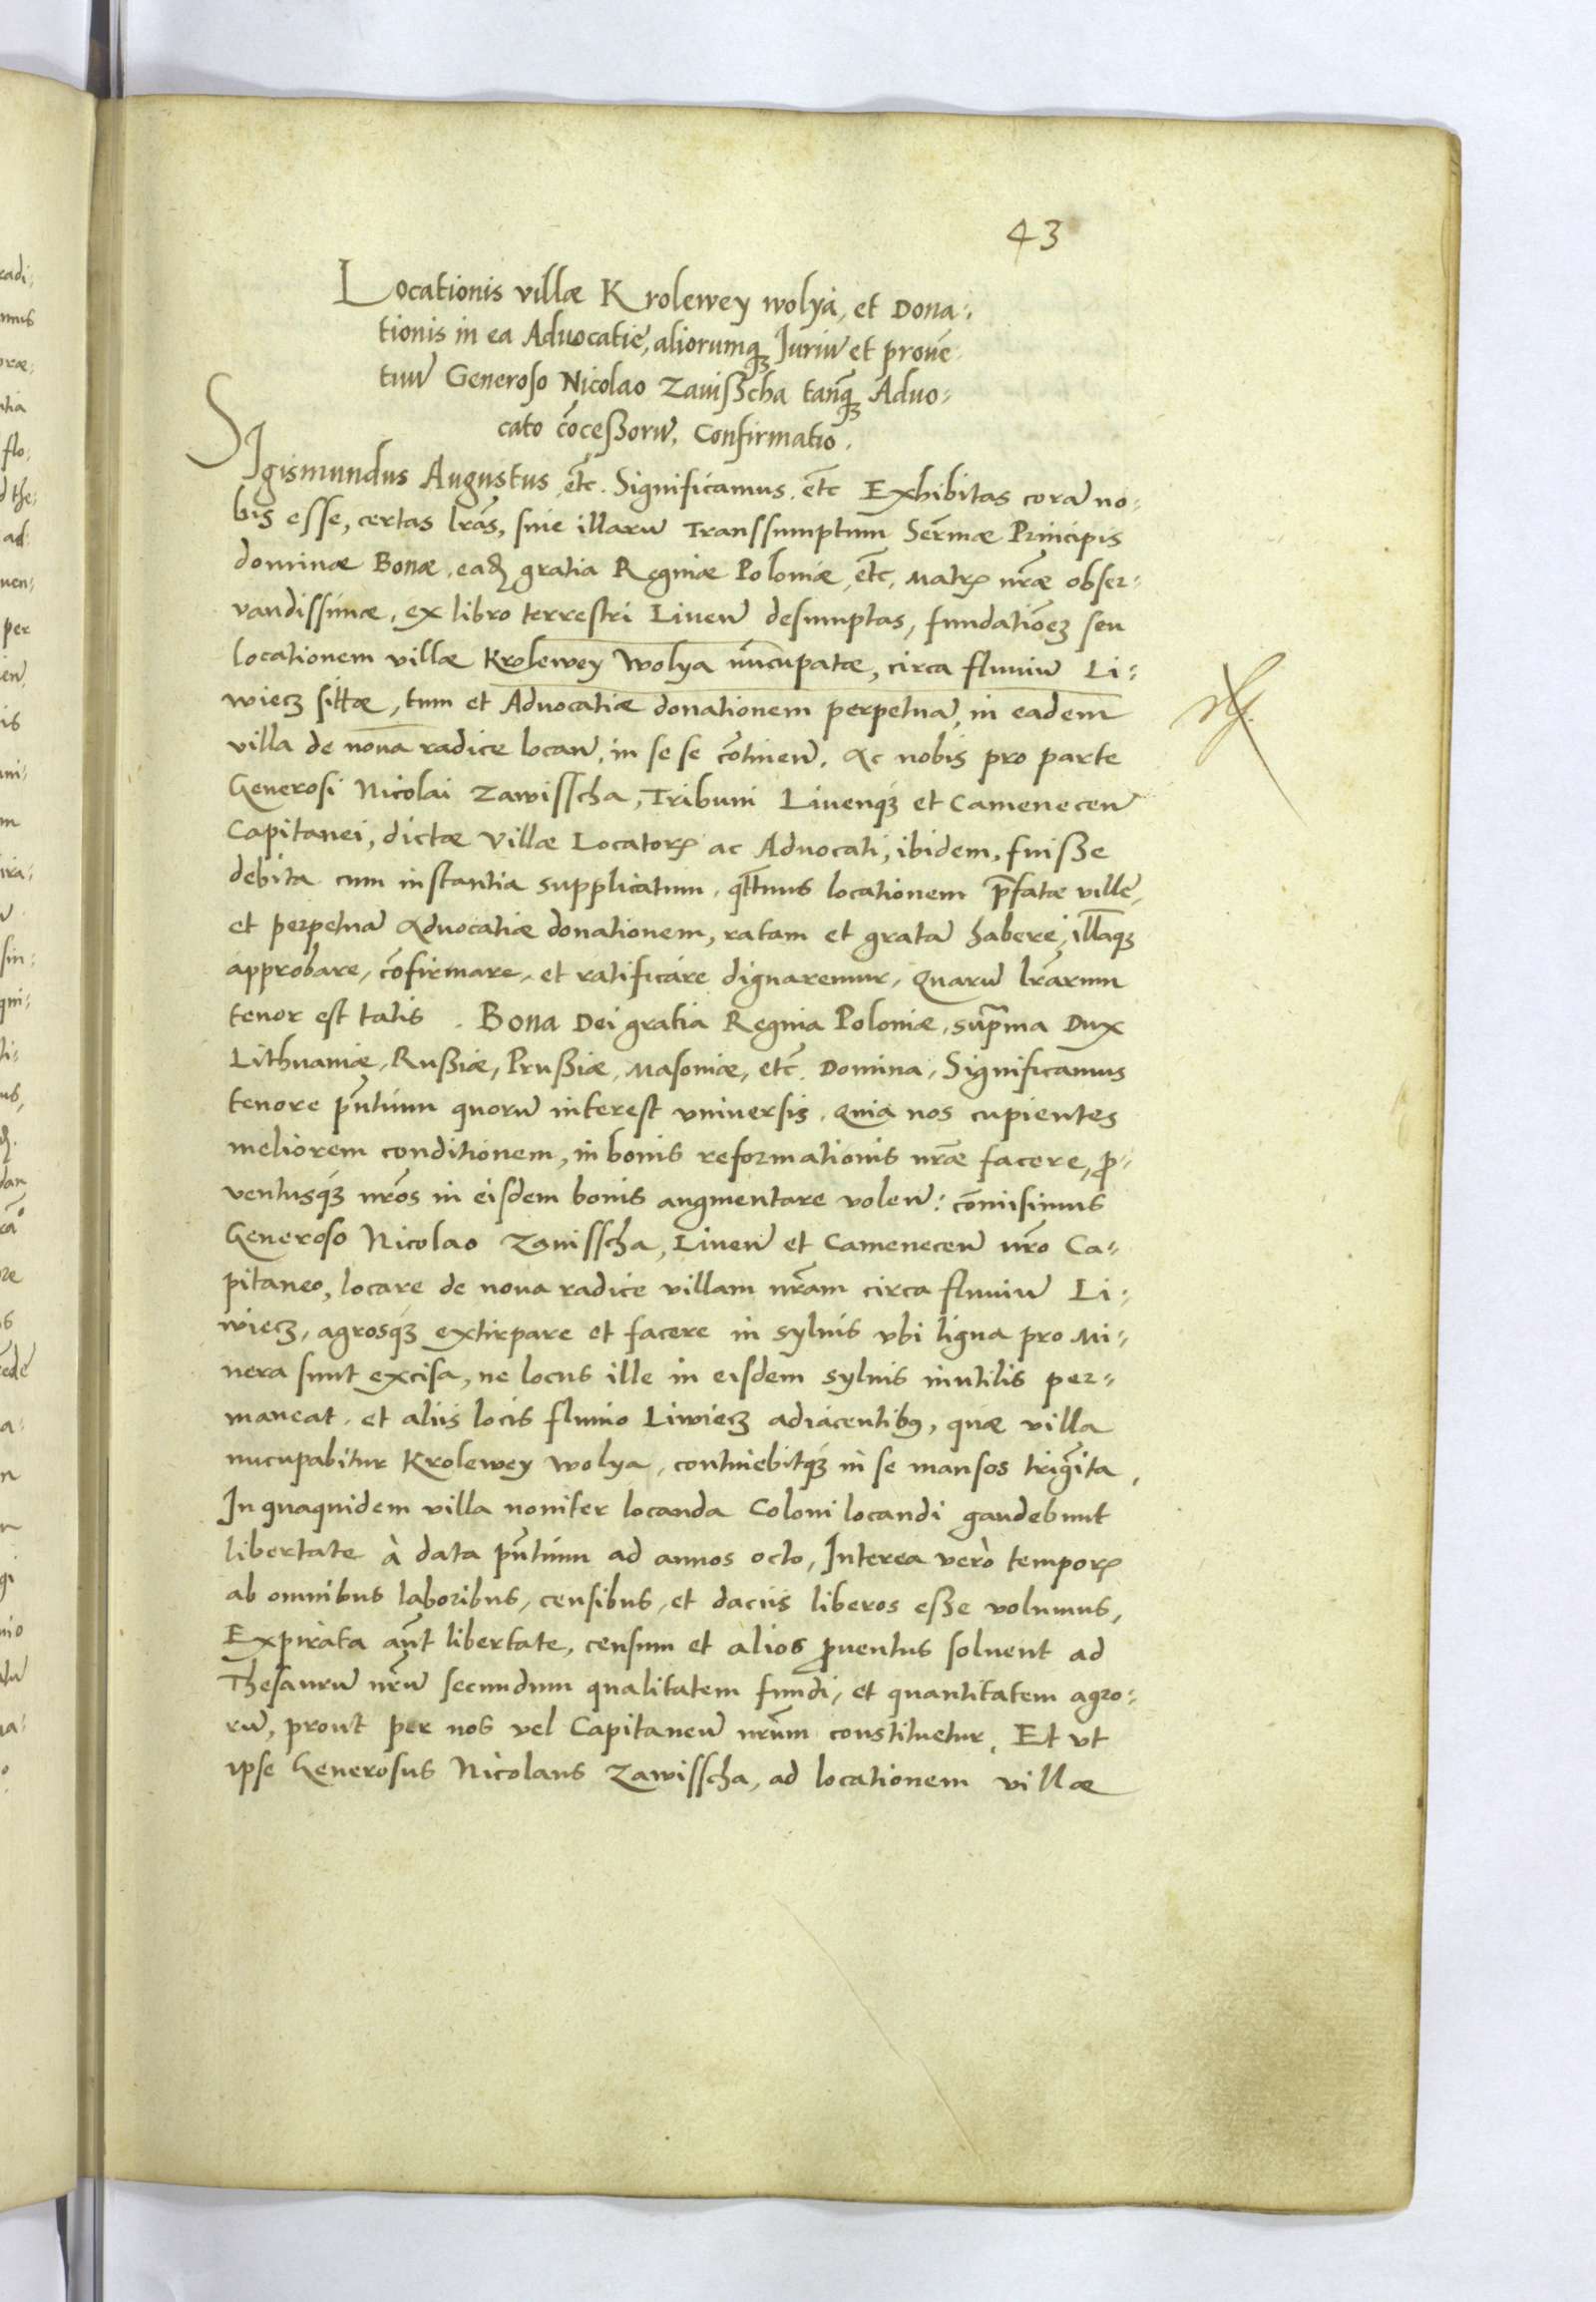 43
Locationis villæ Krolewey wolya, et Dona-
tionis in ea Advocatiæ, aliorumq₃ Iuriū et provē-
tuū Generoso Nicolao Zavißcha tanq̄₃ Advo-
cato cōceßorū, Confirmatio.
SIgismundus Augustus, etc̄. Significamus. etc̄ Exhibitas corā no-
bis esse, certas lr̄as, siue illarū Transsumptum Serm̄æ Principis
dominæ Bonæ, eadꝫ gratia Reginæ Poloniæ, etc̄, Matrꝭ nr̄æ obser-
vandissimæ, ex libro terrestri Liuen̄ desumptas, fundatiōeꝫ seu
locationem villæ Krolewey Wolya nūcupatæ, circa fluuiū Li-
wiecꝫ sittæ, tum et Advocatiæ donationem perpetuā, in eadem
villa de noua radice locan̄, in se se cōtinen̄. Ac nobis pro parte
Generosi Nicolai Zawisscha, Tribuni Liuenq₃ et Camenecen̄
Capitanei, dictæ Villæ Locatorꝭ ac Advocati, ibidem, fuiße
debita cum instantia supplicatum, qt̄tnus locationem p̄fatæ ville,
et perpetuā Advocatiæ donationem, ratam et gratā habere, illāq₃
approbare, cōfirmare, et ratificare dignaremur, Quarū lr̄arum
tenor est talis. Bona Dei gratia Regina Poloniæ, sup̄ma Dux
Lithuaniæ, Rußiæ, Prußiæ, Masoniæ, etc̄. Domina, Significamus
tenore pn̄tium quorū interest vniversis. Quia nos cupientes
meliorem conditionem, in bonis reformationis nr̄æ facere, ꝓ-
ventusq₃ nr̄os in eisdem bonis augmentare volen̄: cōmisimus
Generoso Nicolao Zauisscha, Liuen̄ et Camenecen̄ nr̄o Ca-
pitaneo, locare de noua radice villam nr̄am circa fluuiū Li-
wiecꝫ, agrosq₃ extirpare et facere in syluis vbi ligna pro Mi-
nera sunt excisa, ne locus ille in eisdem syluis inutilis per-
maneat, et aliis locis fluuio Liwiecꝫ adiacentibꝯ, quæ villa
nucupabitur Krolewey wolya, continebitq₃ in se mansos trigīta,
In quaquidem villa nouiter locanda Coloni locandi gaudebunt
libertate à data pn̄tium ad annos octo, Interea verò temporꝭ
ab omnibus laboribus, censibus, et daciis liberos eße volumus,
Expirata aūt libertate, censum et alios ꝓuentus soluent ad
Thesaurū nr̄ū secundum qualitatem fundi, et quantitatem agro-
rū, prout per nos vel Capitaneū nr̄um constituetur. Et vt
ipse Generosus Nicolaus Zawisscha, ad locationem villæ